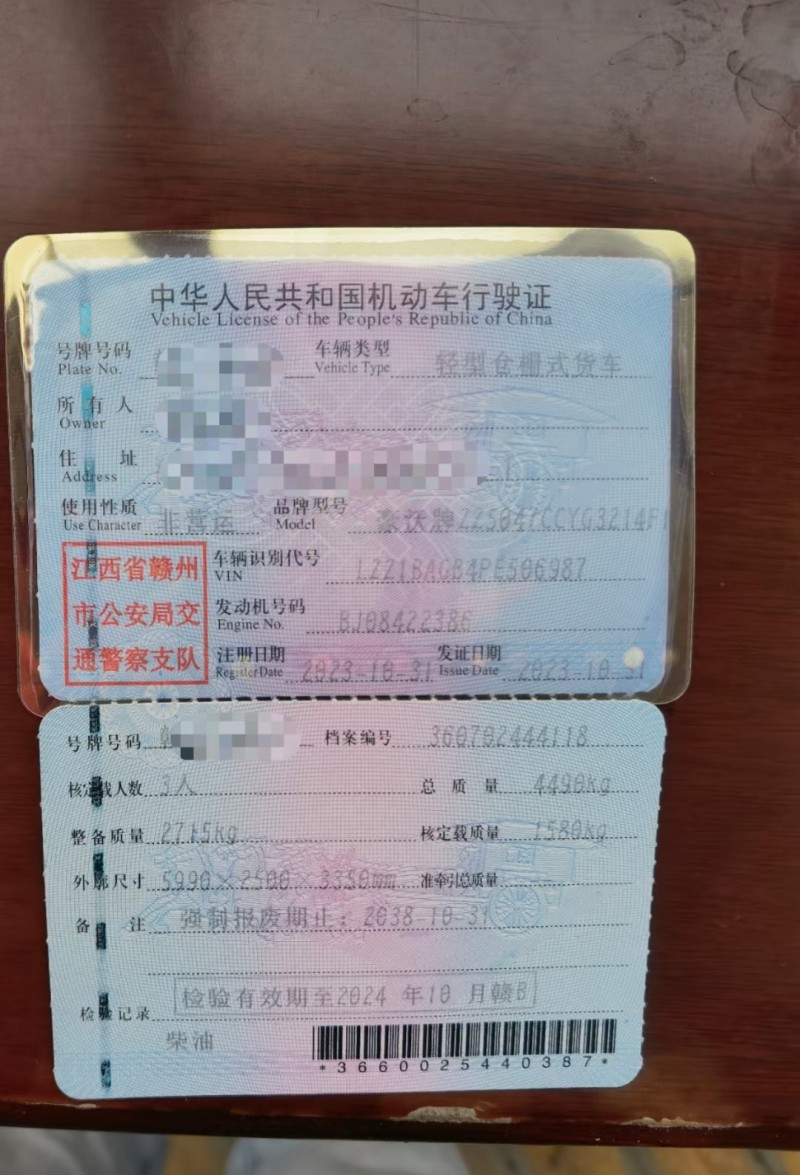 中华人民共和国机动车行驶证
Vehicle License of the People's Republic of China
号牌号码 车辆类型 轻型仓栅式货车
Plate No. Vehicle Type
所有人
Owner
住址
Address
使用性质 非营运 品牌型号 豪沃牌ZZ5047CCYG3214F1
Use Character Model
江西省赣州
市公安局交
通警察支队
车辆识别代号 LZZ1BACB4PE506987
VIN
发动机号码 BJ08422386
Engine No.
注册日期 2023-10-31 发证日期 2023-10-31
Register Date Issue Date
号牌号码 档案编号 360702444118
核定载人数 3人 总质量 4490kg
整备质量 2715kg 核定载质量 1580kg
外廓尺寸 5990×2500×3350mm 准牵引总质量
备注 强制报废期止：2038-10-31
检验有效期至2024 年10 月赣B
检验记录
柴油
*3660025440387*